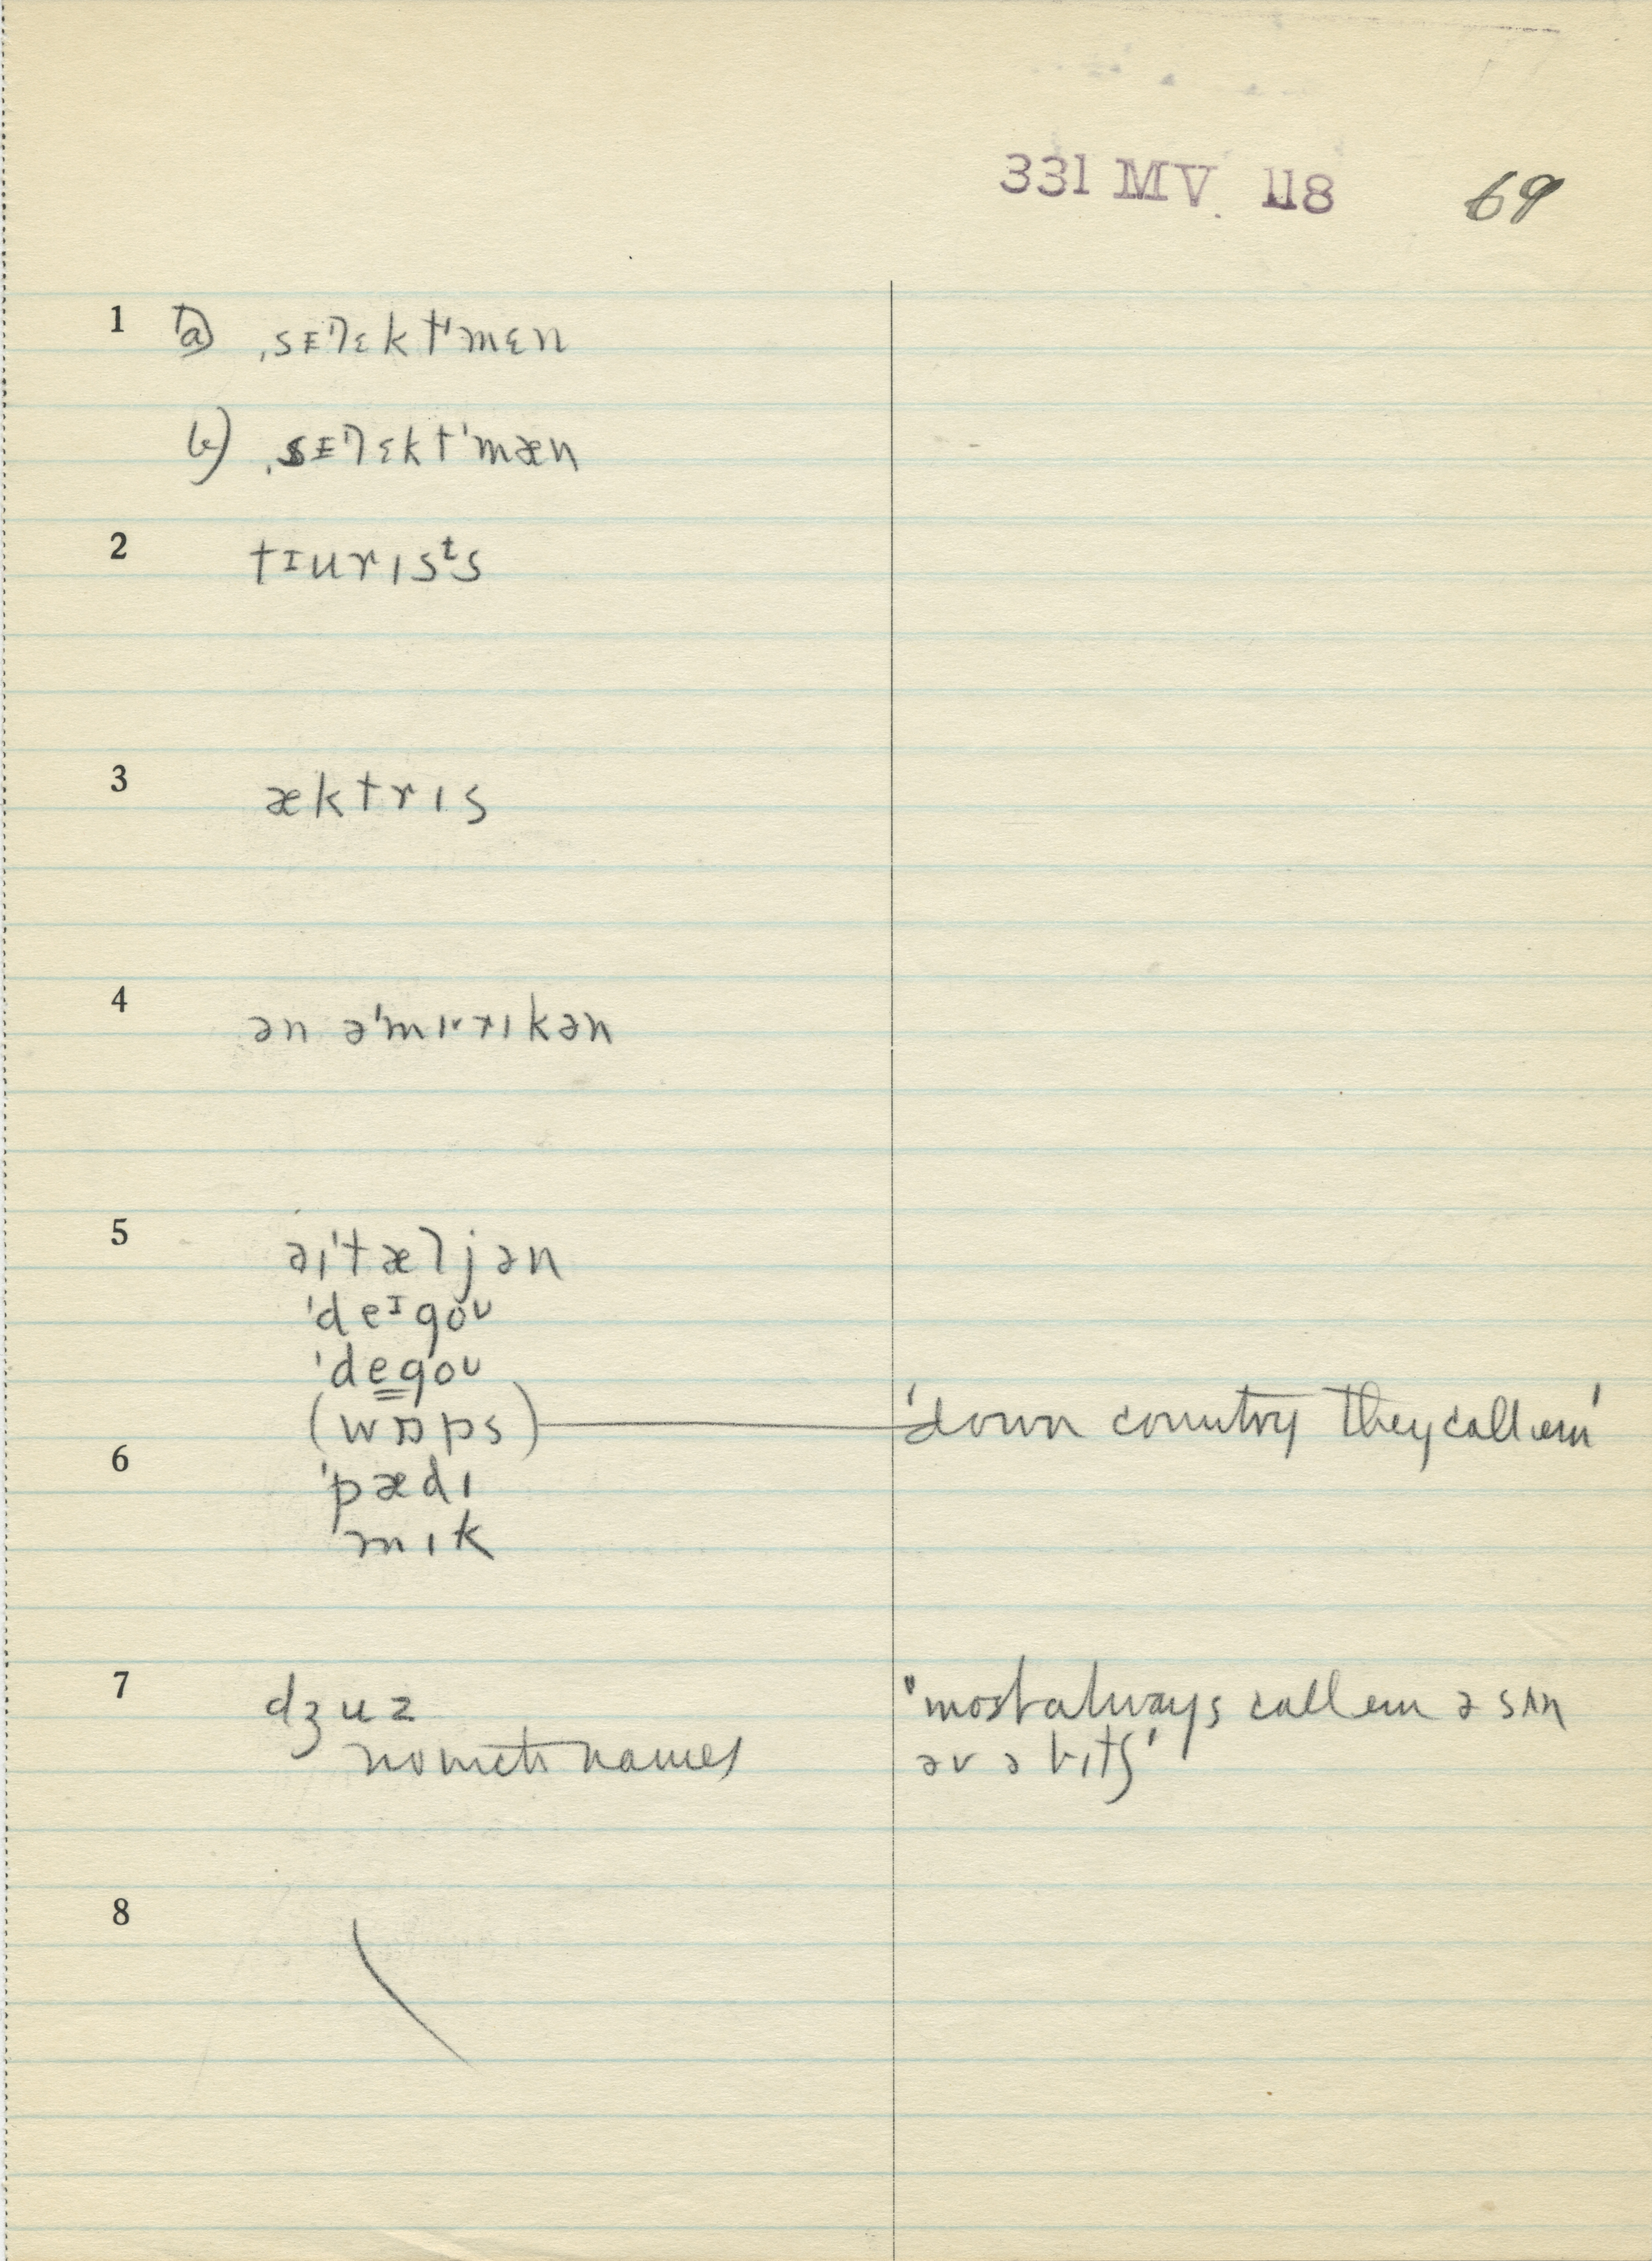 331 MV. 118 69
1 a) ˌsᴇˈlɛktˈmɛn
b) ˌsᴇˈlɛktˈmæn
2 tɪurɪsᵗs
3 æktrɪs
4 ən əˈmɪrɪkən
5 əɪˈtæljən
ˈdeᶦgoʊ
ˈdegoʊ
(wɒps) 'down country they call em'
6 ˈpædɪ
mɪk
7 dʒuz "most always call em ə sʌn
names əv ə bɪtʃ'
8